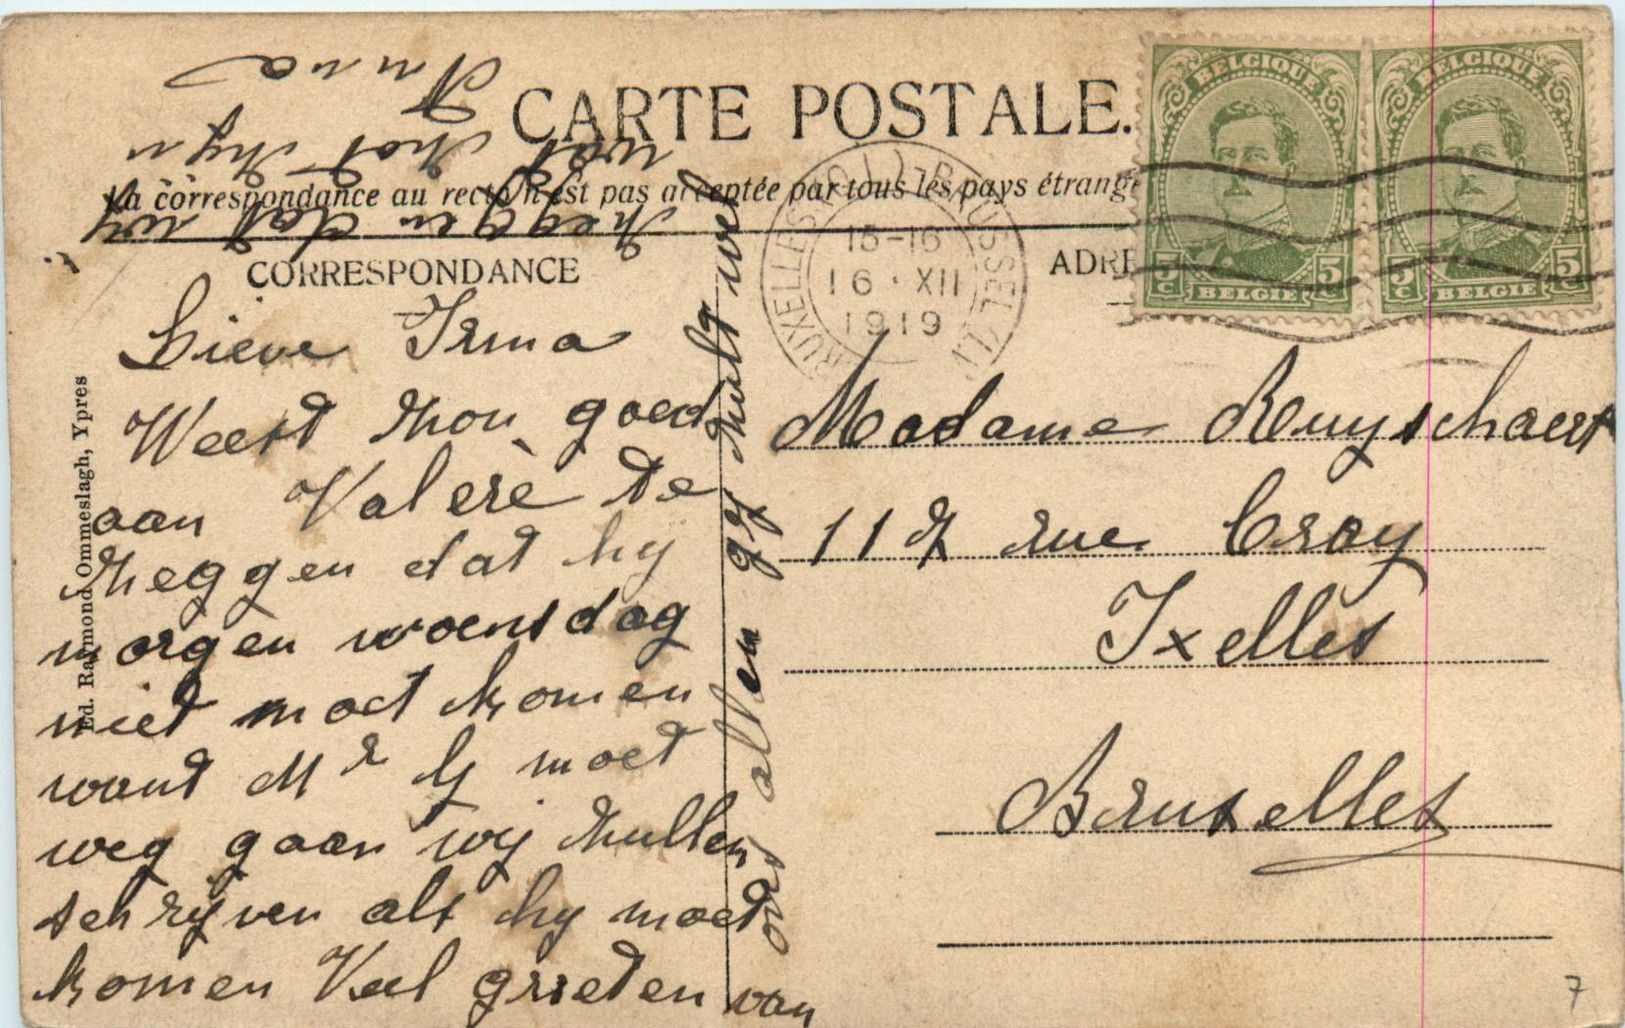 CARTE POSTALE.
La correspondance au recto n'est pas acceptée par tous les pays étrange
CORRESPONDANCE
ADRE
Ed. Raymond Ommeslagh, Ypres
BELGIQUE
5 c
BELGIE
5 c
BELGIQUE
5 c
BELGIE
5 c
BRUXELLES
BRUSSEL
15-16
16 · XII
1919
Lieve Irma
Weest zkou goed
aan Valère te
zeggen dat hy
morgen woensdag
niet moet komen
want Mr G moet
weg gaan wij zullen
schrijven als hy moet
komen Veel grieten van
ons allen gy zult wel
zeggen dat wy
wel zot zyn
Anna
Madame Reuyschaert
117 rue Cray
Ixelles
Bruxelles
7